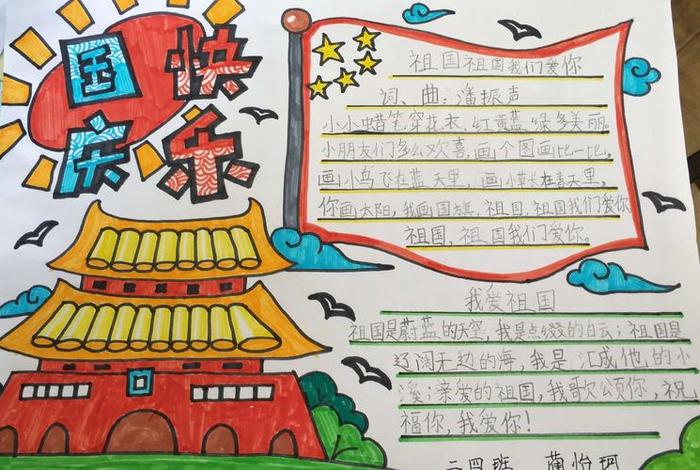 国庆
快乐
祖国祖国我们爱你
词、曲：潘振声
小小蜡笔穿花衣，红黄蓝绿多美丽。
小朋友们多么欢喜，画个图画比一比。
画小鸟飞在蓝天里，画小草长在春天里，
你画太阳，我画国旗，祖国，祖国我们爱你
祖国，祖国我们爱你。
我爱祖国
祖国是蔚蓝的天空，我是点缀的白云；祖国是
辽阔无边的海，我是汇成他的小
溪；亲爱的祖国，我歌颂你，祝
福你，我爱你！
二四班